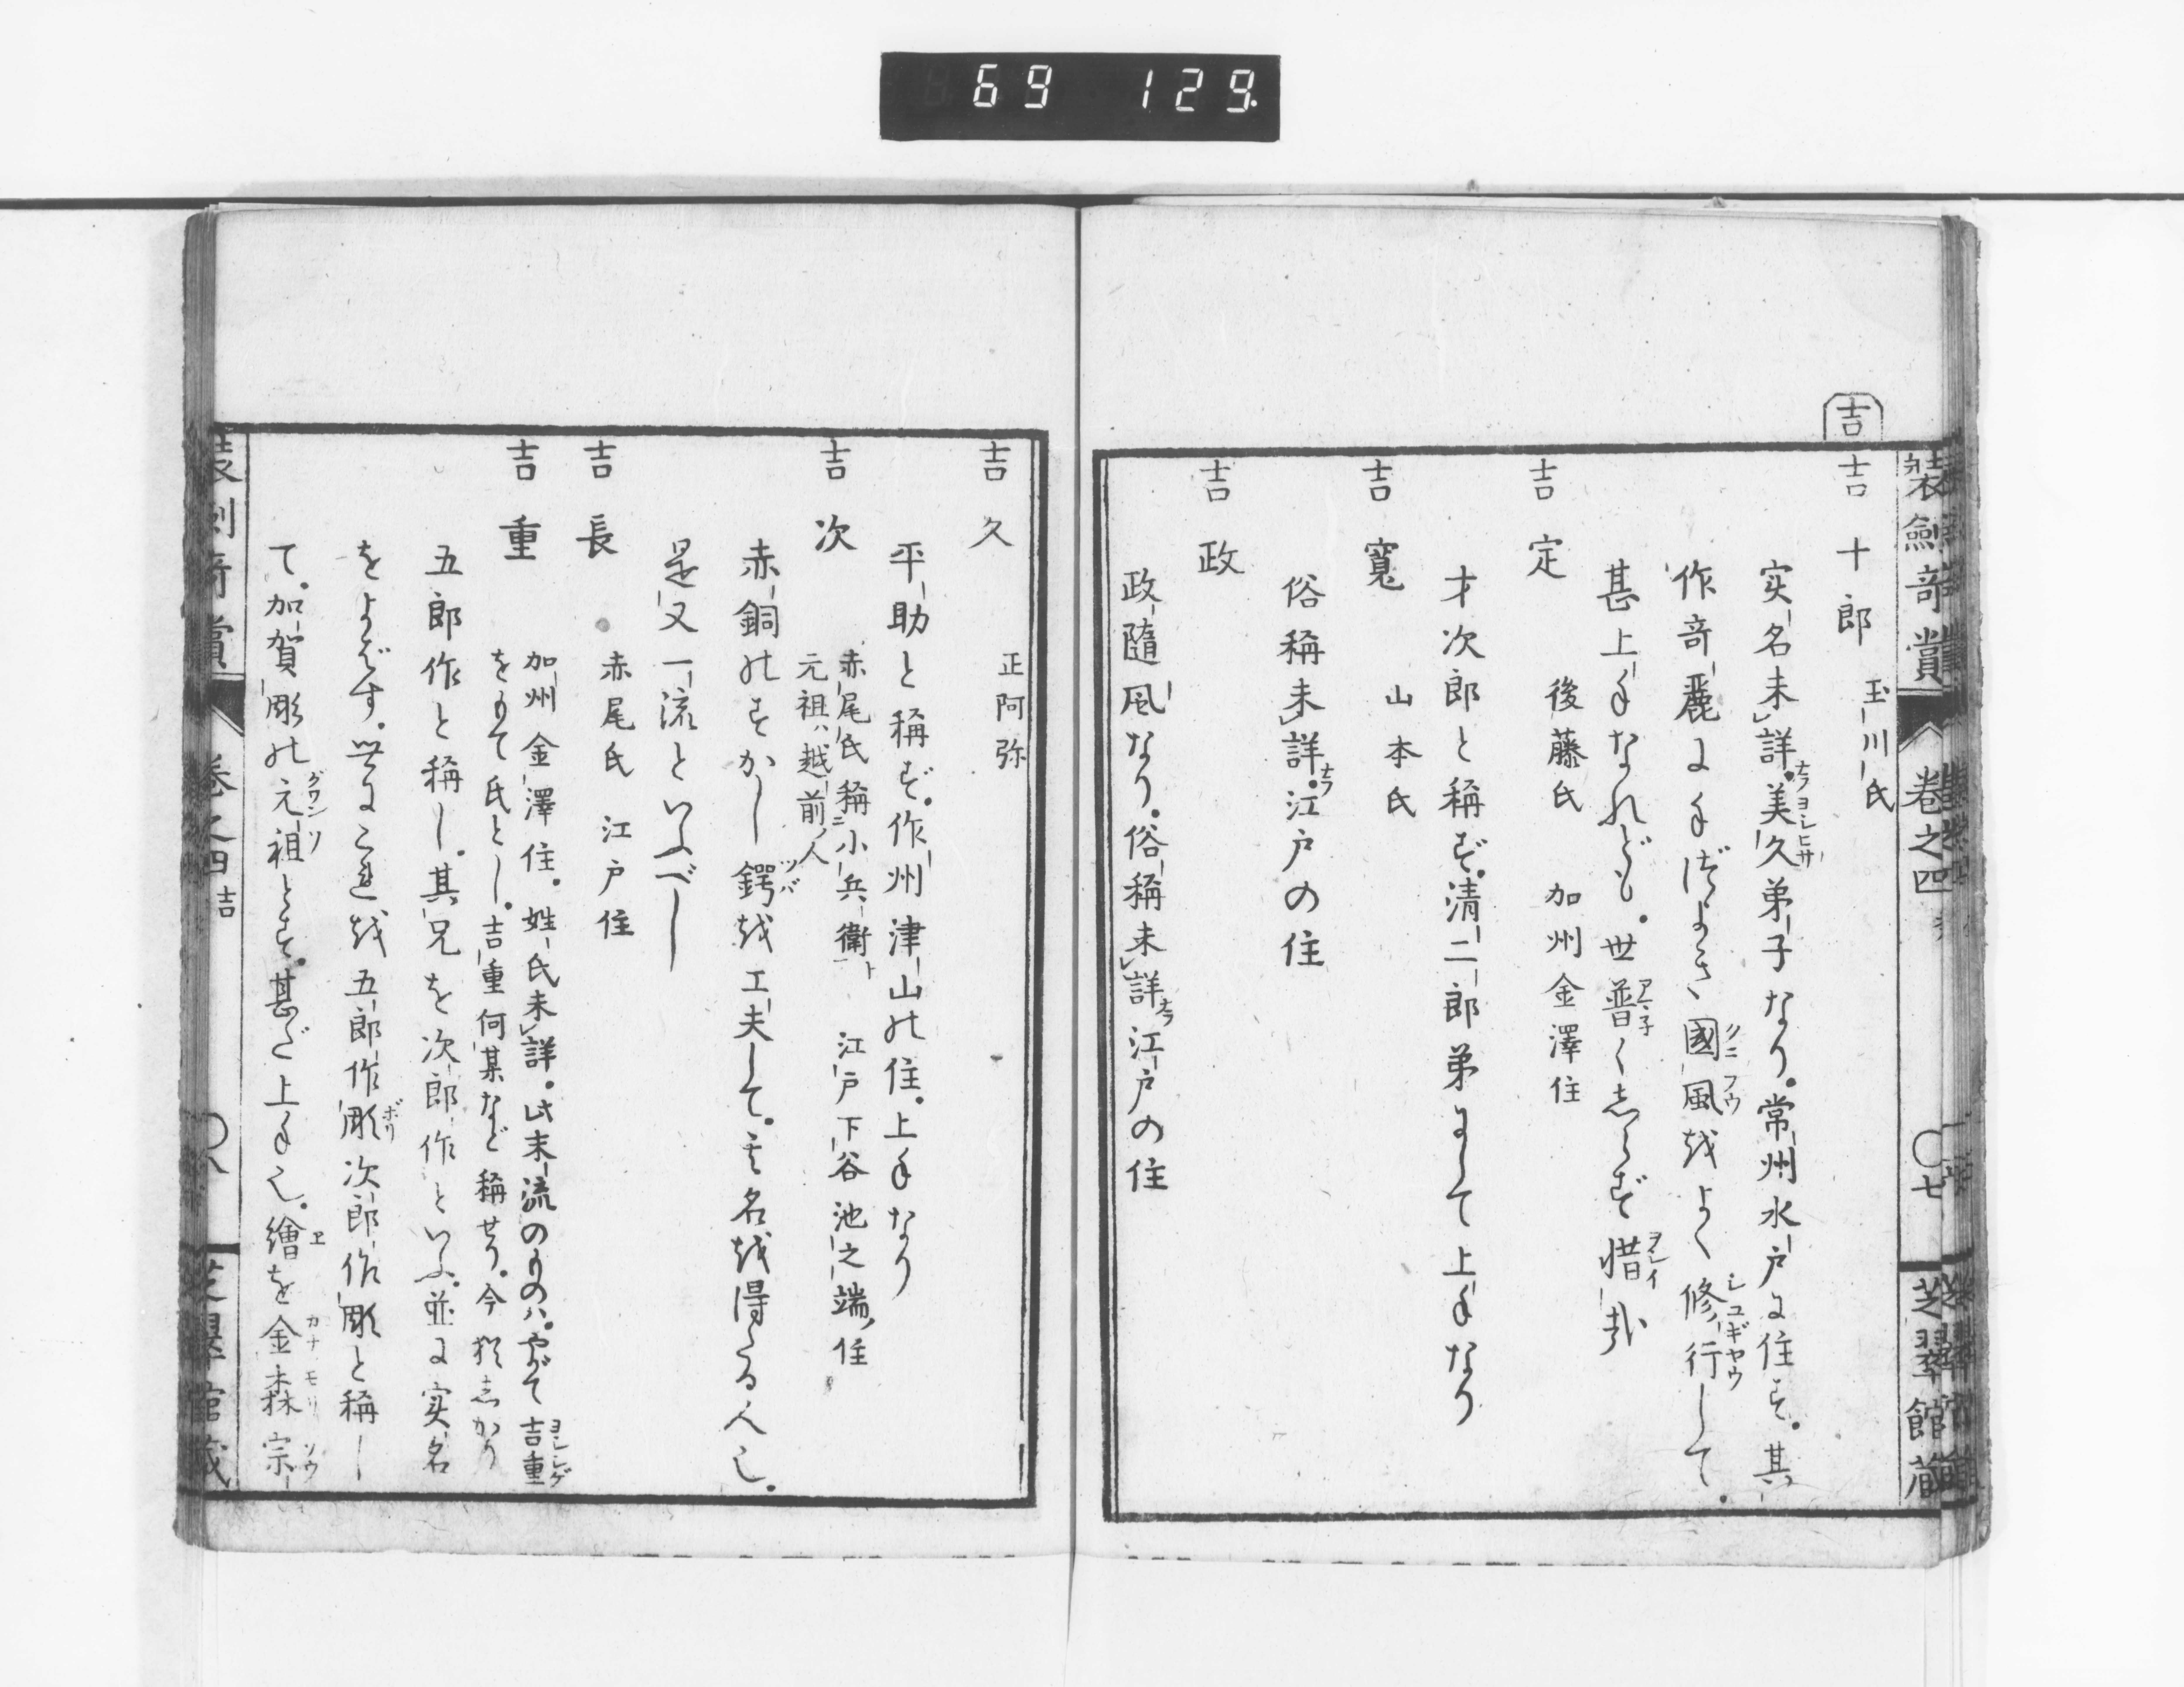 69 129.
装劔竒賞 巻之四 〇七 芝翠館蔵
吉
吉十郎 玉川氏
実名未詳。美久弟子なり。常州水戸に住す。其
作竒麗にて手ぎはよき、國風越よく修行して。
甚上手なれども。世普くしらず惜哉
吉定 後藤氏 加州金澤住
才次郎と称す。清二郎弟にして上手なり
吉寛 山本氏
俗称未詳。江戸の住
吉政
政随風なり。俗称未詳江戸の住
吉久 正阿弥
平助と称す。作州津山の住。上手なり
吉次 赤尾氏称小兵衛ト 江戸下谷池之端ノ住
元祖ハ越前ノ人
赤銅のすかし鍔を工夫して。其名を得たる人也。
是又一流といふべし
吉長 赤尾氏 江戸住
吉重 加州金澤住。姓氏未詳。此末流のものハ。やがて吉重
をもて氏とし。吉重何某など称せり。今猶しかり
五郎作と称し。其兄を次郎作といふ。並に実名
をよばず。世にこれを五郎作彫次郎作彫と称し
て。加賀彫の元祖とす。甚だ上手也。繪を金森宗
装劔竒賞 巻之四 吉 〇八 芝翠館蔵